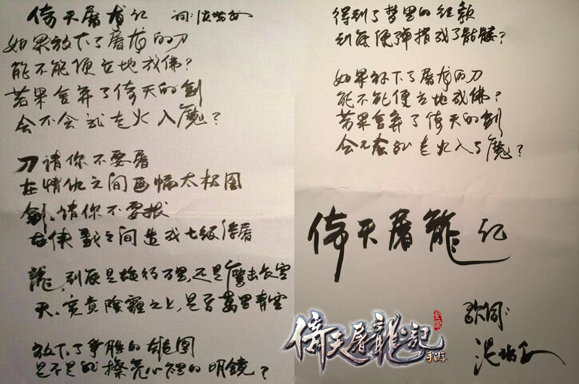 倚天屠龍记
词:沈
如果放下了屠龙的刀
能不能便立地成佛?
若果舍弃了倚天的剑
会不会就走火入魔?
刀请你不要屠
在情仇之间画幅太极图
剑,请你不要拔
在侠 之间造成七级浮屠
龍,到底是 万里,还是鹰击长空
天,究竟阴霾之上,是否萬里青空
放下了争胜的雄图
是不是能擦亮心裡的明鏡?
得到了梦里的红颜
到底便弹指成了骷髅?
如果放下了屠龙的刀
能不能便立地成佛?
若果舍弃了倚天的剑
会不会就走火入了魔?
倚天屠龍记
歌词:
倚天屠龍記
手游